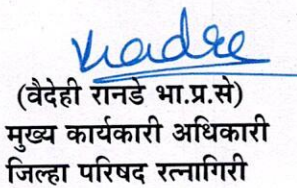 (वैदेही रानडे भा.प्र.से)
मुख्य कार्यकारी अधिकारी
जिल्हा परिषद रत्नागिरी